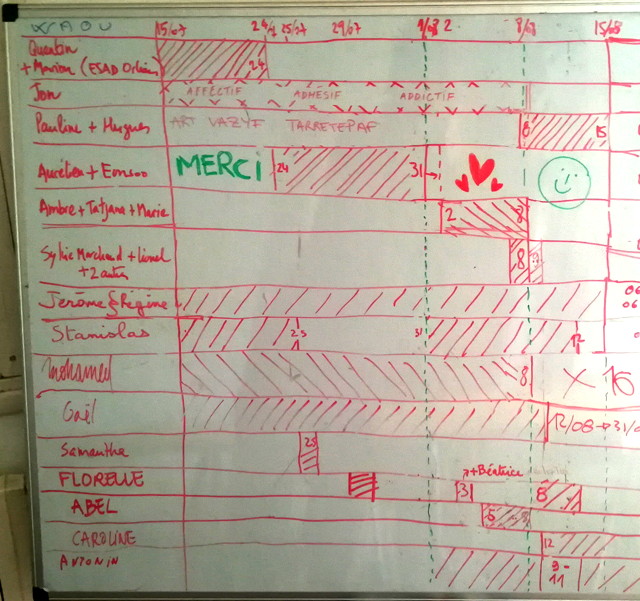 15/07 24/7 25/07 29/07 1/08 2 8/08 15/08
Quentin
+ Marion (ESAD Orléans) 24
Jon AFFÉCTIF ADHÉSIF ADDICTIF
Pauline + Hugues ART VAZYF TARRETEPAF 8 15
Aurélien + Eonsoo MERCi 24 31
Ambre + Tatjana + Marie 2 8
Sylvie Marchand + Lionel 8
+ 2 autres
Jerôme & Régine 06
06
Stanislas 25 31 12
Mohamed 8 × 16
Gaël 12/08 → 31/0
Samantha 25
FLORELLE 3 + Béatrice 8
ABEL 5
CAROLINE 12
ANTONIN 9 -
11